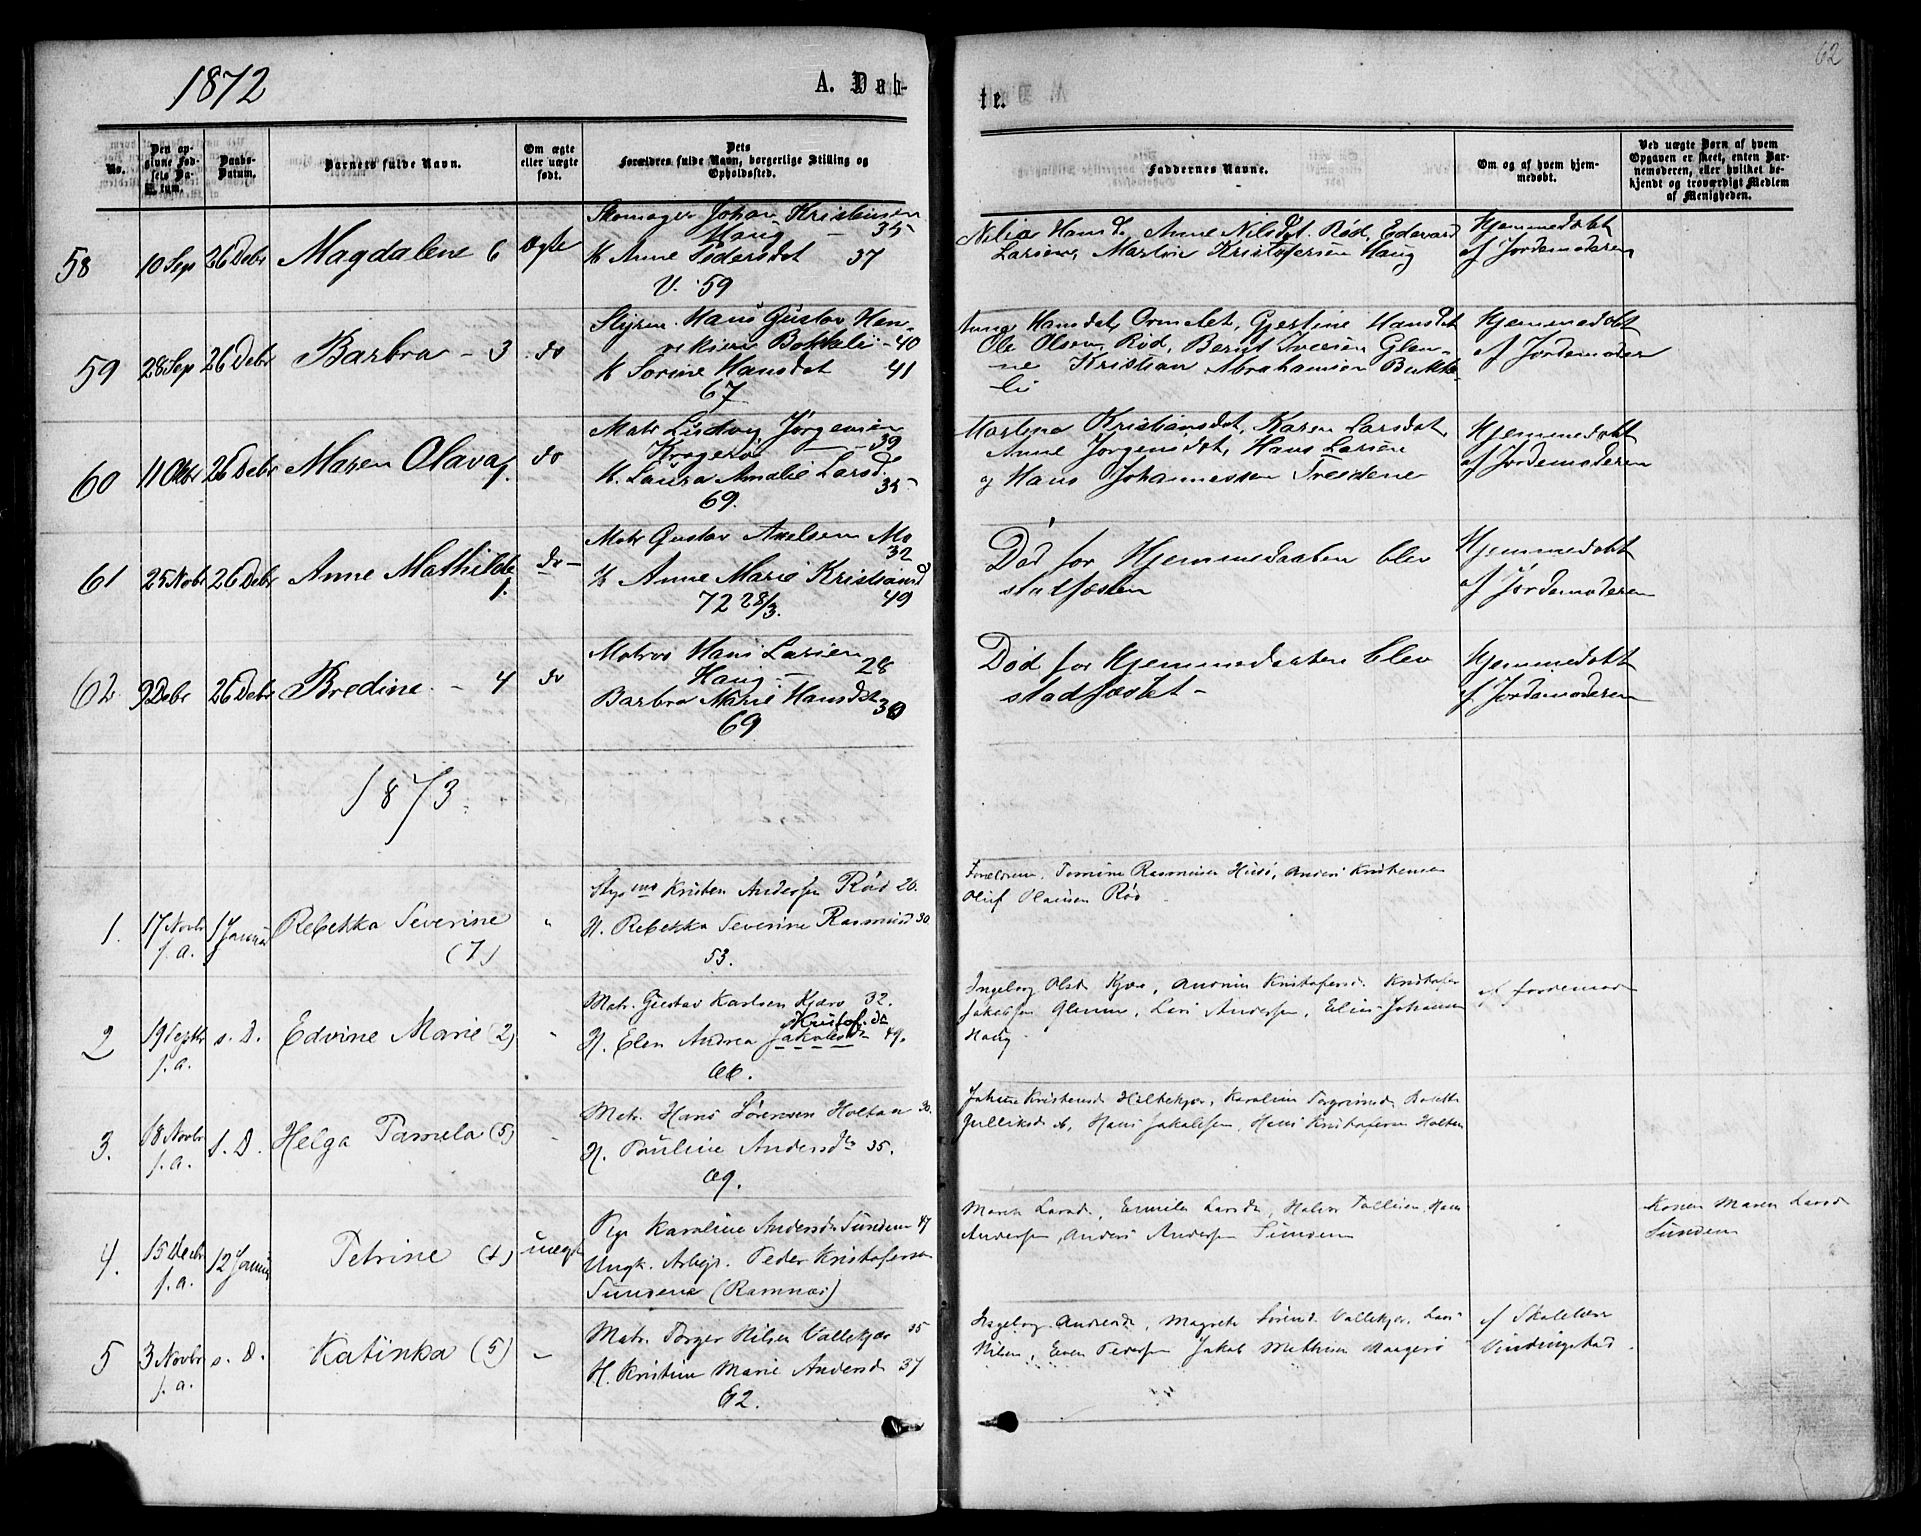 1872
A. Døb-
te.
62
No.
Den opgivne Fødsels Datum.
Daabs-Datum.
Barnets fulde Navn.
Om ægte eller uægte født.
Dets Forældres fulde Navn, borgerlige Stilling og Opholdssted.
Faddernes Navne.
Om og af hvem hjemmedøbt.
Ved uægte Børn af hvem Opgaven er skeet, enten Barnemoderen, eller hvilket bekjendt og troværdigt Medlem af Menigheden.
58 10 Sep 26 Debr Magdalene 6 Ægte
Skomager Johan Kristiansen
Haug - 35
K Anne Pedersdat 37
V. 59
Hansd. Anne Nilsdat. Rød, Edevard
Larsen, Martin Kristofersen Haug
Hjemmedøbt
af Jordemoderen
59 28 Sep 26 Debr Barbra - 3 do
Styrm. Hans Gustav Hen-
riksen Bakkeli - 40
K Sorine Hansdat 41
67
Anna Hansdat, Ormelet, Gjestine Hansdat
Ole Olsen, Rød, Bernt Iversen Glen-
ne Kristian Abrahamsen Bakke-
li
Hjemmedøbt
af Jordemoder
60 11 Okbr 26 Debr Maren Olava 1. do
Matr Ludvig Jørgensen
Kragerø - 39
K. Laura Amalie Larsd. 35
69.
Martene Kristiansdat, Karen Larsdat,
Anne Jørgensdat, Hans Larsen
og Hans Johannessen Treidene
Hjemmedøbt
af Jordemoderen
61 25 Nobr 26 Debr Anne Mathilde 1. do -
Matr Gustav Axelsen Mo
32
K Anne Marie Kristiansd
72 28/3. 49
Død før Hjemmedaaben blev
stadfæsten
Hjemmedøbt
af Jordemoderen
62 9 Debr 26 Debr Bredine - 4 do
Matros Hans Larsen
Haug - 28
Barbra Marie Hansdat 30
69
Død før Hjemmedaaben blev
stadfæstet -
Hjemmedøbt
af Jordemoderen
1873.
1. 17 Novbr f.a. 1 Januar Rebekka Severine (7) "
Stys Kristen Andersen Rød 20.
H. Rebekka Severine Rasmusd 30
53.
Forældrene, Tomine Rasmusen Husø, Anders Kristensen
Oluf Olausen Rød -
2 19 Septbr f.a. s. D. Edvine Marie (2) "
Matr. Gustav Karlsen Kjære 32.
Kristof. da
H. Elen Andrea Jakobsd 49.
66.
Ingeborg Olsd Kjær, Kristofersd. Kristofer
Jakobsen Glenne, Lars Andersen, Elias Johansen
Haug.
af Jordemod
3. 18 Novbr f.a. s. D. Helga Pamela (5) "
Matr. Hans Sørensen Holtan 30.
H. Pauline Andersdtr 35.
69.
Kristensd Holtekjær, Karoline Torgrimsd,
Gulliksd, Hans Jakobsen, Hans Kristofersen Holtan
4. 15 Decbr f.a. 12 Januar Petrine (1) uægt
Pige Karoline Andersd Sundene 47
Ungk. Arbejd. Peder Kristofersen
Sundene (Ramnæs)
Maren Larsd, Emilie Larsd, Halvor Tollefsen, Hans
Andersen, Anders Andersen Sundene
Konen Maren Larsd
Sundene
5 3 Novbr f.a. s. D. Katinka (5) "
Matr. Torger Nilsen Vallekjær 35
H. Kristine Marie Andersd 37
62.
Ingeborg Andersd, Magrete Sørensd Vallekjær, Lars
Nilsen, Even Pedersen Jakob Mathisen Haagerø
af Skolelærer
Vindingstad.